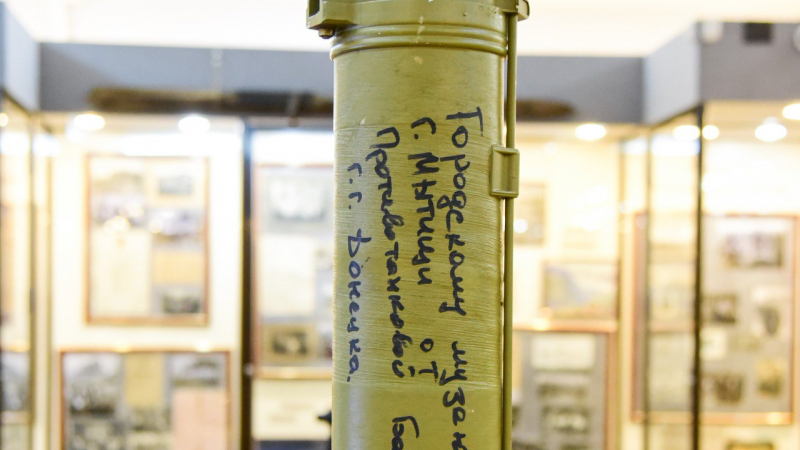 Городскому музак
г. Мытищи от
Противотанковой Ба
г. г. Донецка.